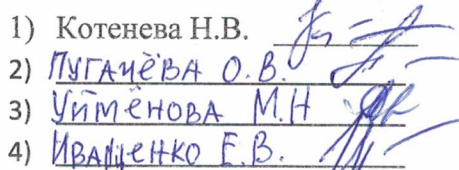 1) Котенева Н.В.
2) ПУГАЧЁВА О.В.
3) УЙМЁНОВА М.Н
4) ИВАЩЕНКО Е.В.